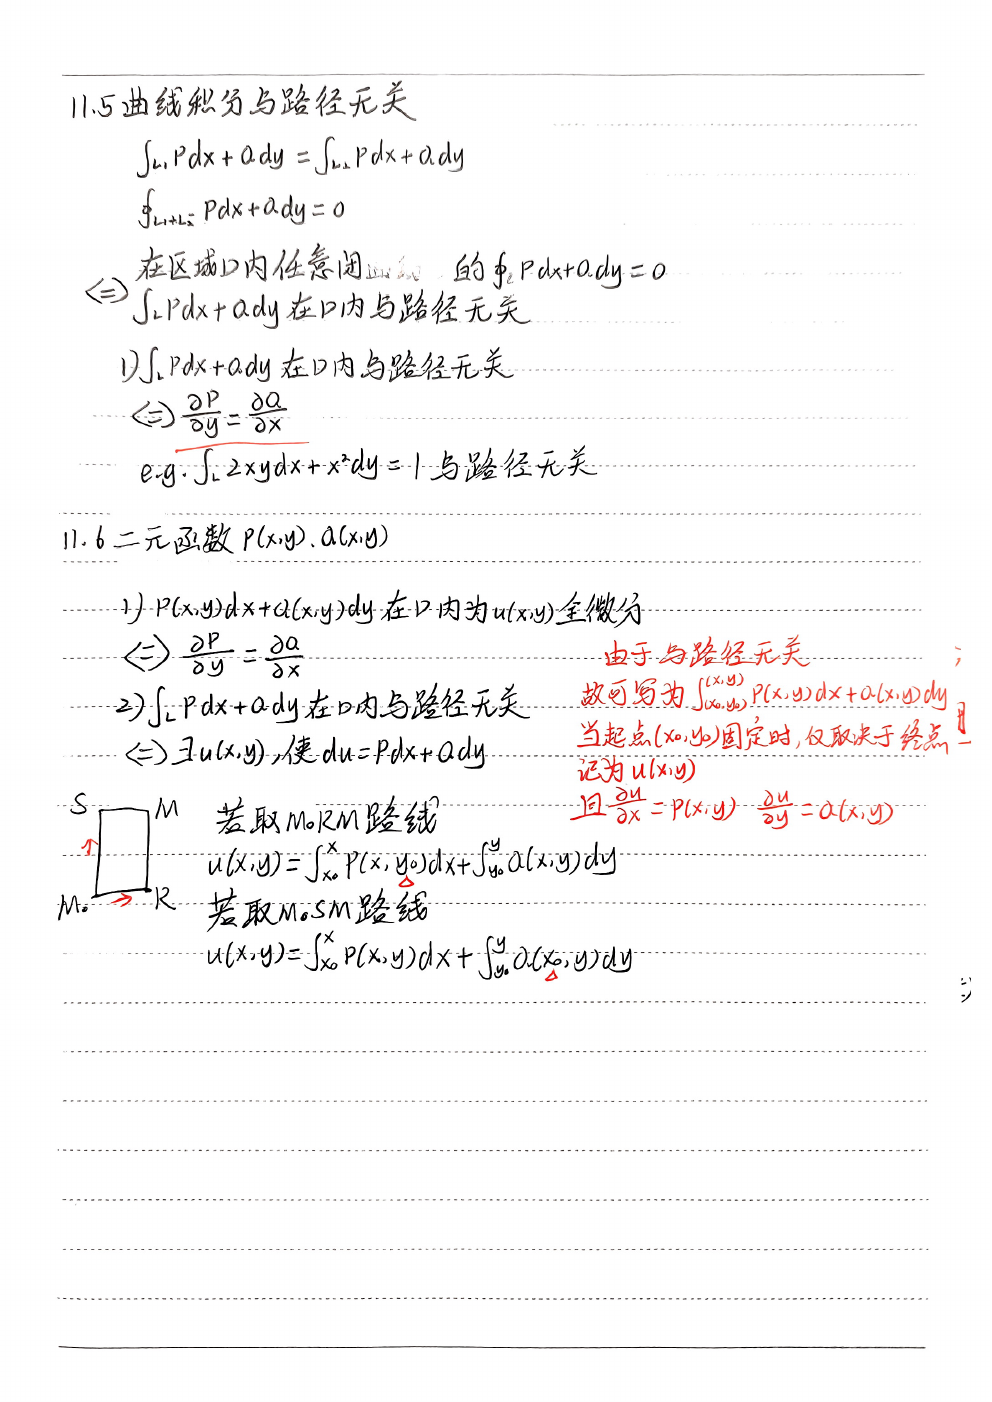 11.5 曲线积分与路径无关
∫L₁ Pdx + Qdy = ∫L₂ Pdx + Qdy
∮L₁+L₂⁻ Pdx + Qdy = 0
在区域D内任意闭 的 ∮L Pdx + Qdy = 0
<=> ∫L Pdx + Qdy 在D内与路径无关
1) ∫L Pdx + Qdy 在D内与路径无关
<=> ∂P/∂y = ∂Q/∂x
e.g. ∫L 2xydx + x²dy = 1 与路径无关
11.6 二元函数 P(x,y)、Q(x,y)
1) P(x,y)dx + Q(x,y)dy 在D内为u(x,y)全微分
<=> ∂P/∂y = ∂Q/∂x
2) ∫L Pdx + Qdy 在D内与路径无关
<=> ∃u(x,y), 使 du = Pdx + Qdy
由于与路径无关
故可写为 ∫(x₀,y₀)^(x,y) P(x,y)dx + Q(x,y)dy
当起点(x₀,y₀)固定时,仅取决于终点
记为 u(x,y)
且 ∂u/∂x = P(x,y) ∂u/∂y = Q(x,y)
S M
M₀ R
若取M₀RM路线
u(x,y) = ∫x₀^x P(x,y₀)dx + ∫y₀^y Q(x,y)dy
若取M₀SM路线
u(x,y) = ∫x₀^x P(x,y)dx + ∫y₀^y Q(x₀,y)dy